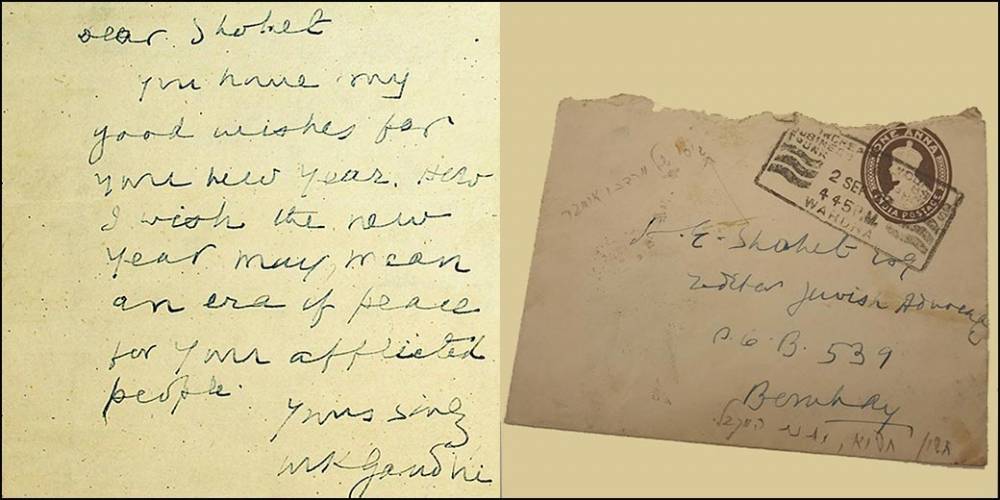 Dear Shohet
you have my
good wishes for
your new year. How
I wish the new
year may mean
an era of peace
for your afflicted
people.
Yours sincly
MKGandhi
INCREASE
BUSINESS
ONE ANNA
INDIA POSTAGE
2 SEP
4 45 P.M.
WARDHA
A. E. Shohet Esq
Editor Jewish Advocate
P. O. B. 539
Bombay